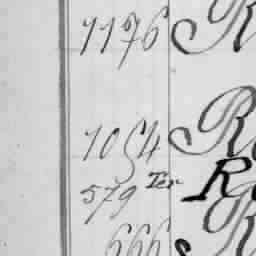 1176 R
1054 R
579 Ter R
666 R